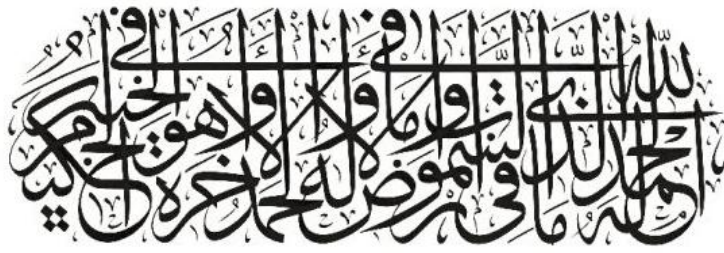 الحمد لله الذي له ما في السموات وما في الأرض وله الحمد في الآخرة وهو الحكيم الخبير